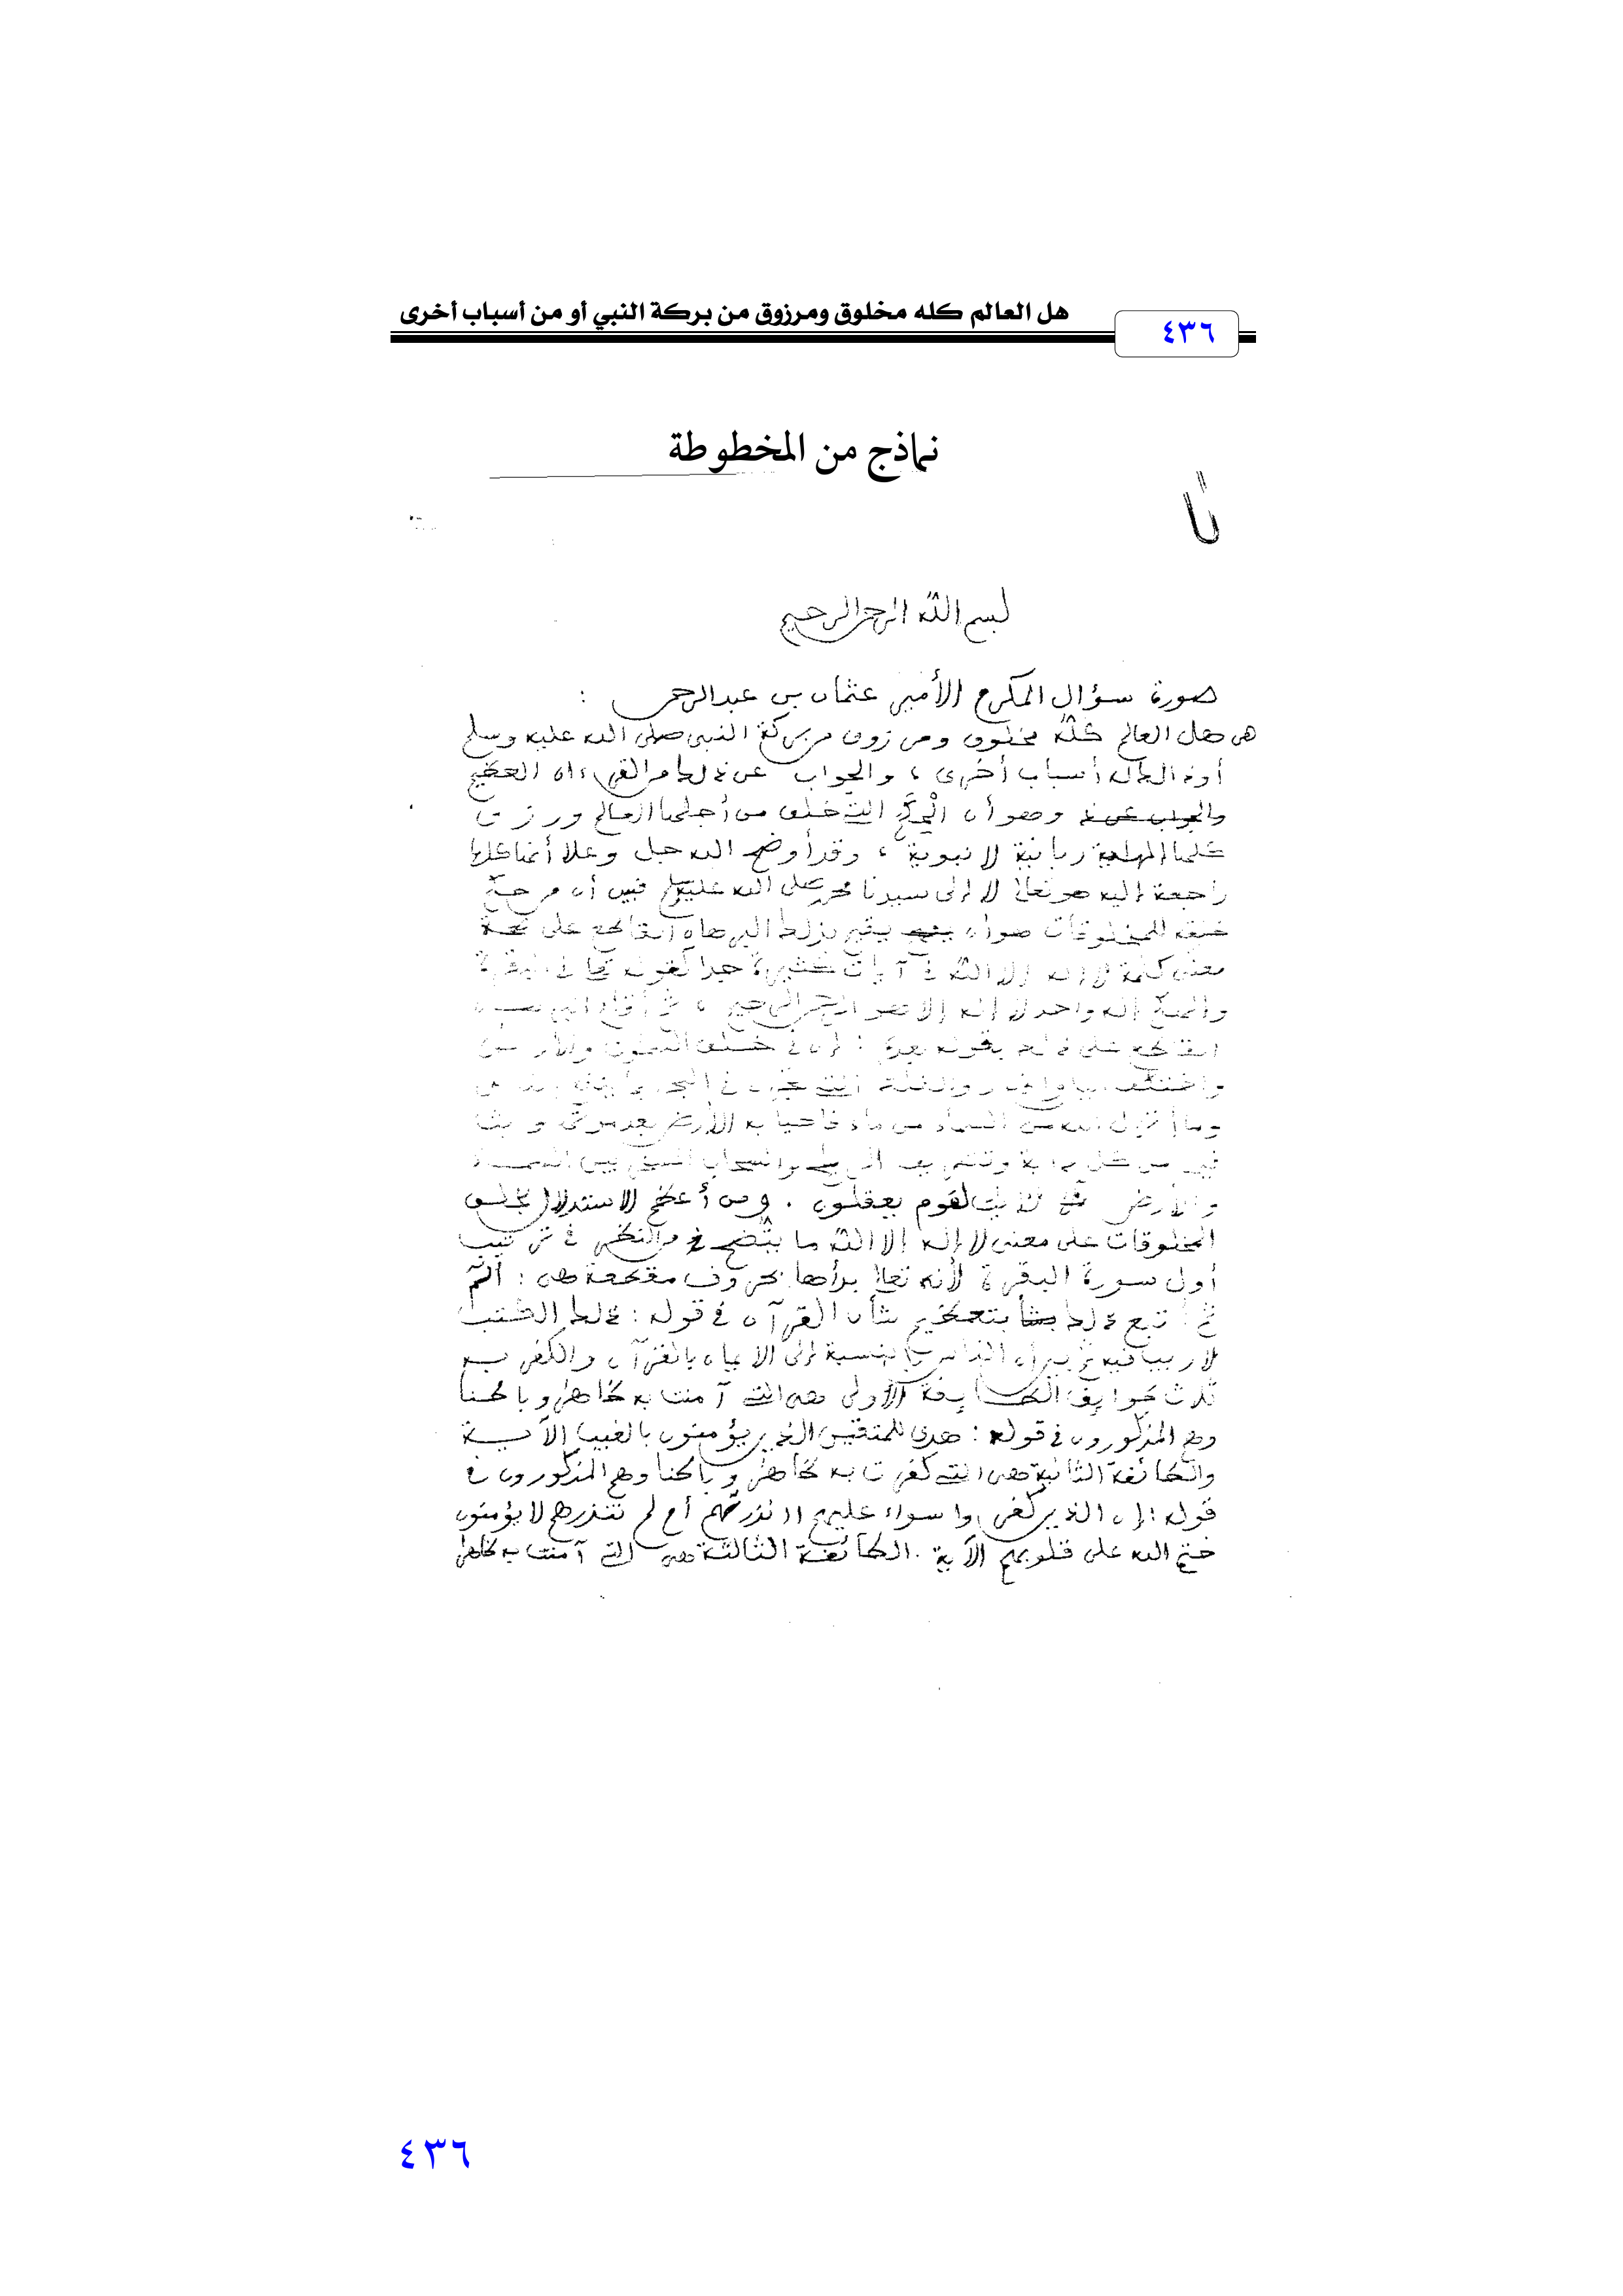 هل العالم كله مخلوق ومرزوق من بركة النبي أو من أسباب أخرى
٤٣٦
نماذج من المخطوطة
بسم الله الرحمن الرحيم
صورة سؤال المكرم الأمير عثمان بن عبدالرحمن :
هى هل العالم كله مخلوق ومرزوق من بركة النبي صلى الله عليه وسلم
أسباب أخرى ، والجواب عن ذلك من القرءان العظيم
وهو أن التى خلق من أجلها العالم ورزق
ربانية لا نبوية ، وقد أوضح الله جل وعلا أنها كلها
راجعة إليه هو تعالى لا إلى سيدنا محمد صلى الله عليه وسلم فبين أن من حكمة
خلقه للمخلوقات هو أن يقيم بذلك البرهان القاطع على صحة
معنى كلمة لا إله إلا الله فى آيات كثيرة جدا كقوله تعالى فى البقرة
وإلهكم إله واحد لا إله إلا هو الرحمن الرحيم ، ثم أقام البرهان
القاطع على ذلك بقوله بعده : إن فى خلق السموات والأرض
واختلف اليل والنهار والفلك التى تجرى فى البحر بما ينفع الناس
وما أنزل الله من السماء من ماء فاحيا به الأرض بعد موتها وبث
فيها من كل دابة وتصريف الريح والسحاب المسخر بين السماء
والأرض لآيت لقوم يعقلون . ومن أعظم الاستدلال بخلق
المخلوقات على معنى لا إله إلا الله ما يتضح من النظر فى ترتيب
أول سورة البقرة لأنه تعالى بدأها بحروف مقطعة هى : الم
ثم أتبع ذلك بتعظيم شأن القرآن فى قوله : ذلك الكتب
لا ريب فيه ثم بين أن الناس بالنسبة إلى الإيمان بالقرآن والكفر به
ثلاث طوايف الطايفة الأولى هى التى آمنت به ظاهرا وباطنا
وهم المذكورون فى قوله : هدى للمتقين الذين يؤمنون بالغيب الآية
والطائفة الثانية هى التى كفرت به ظاهرا وباطنا وهم المذكورون فى
قوله : إن الذين كفروا سواء عليهم ءانذرتهم أم لم تنذرهم لا يؤمنون
ختم الله على قلوبهم الآية . الطائفة الثالثة هى التى آمنت به ظاهرا
٤٣٦